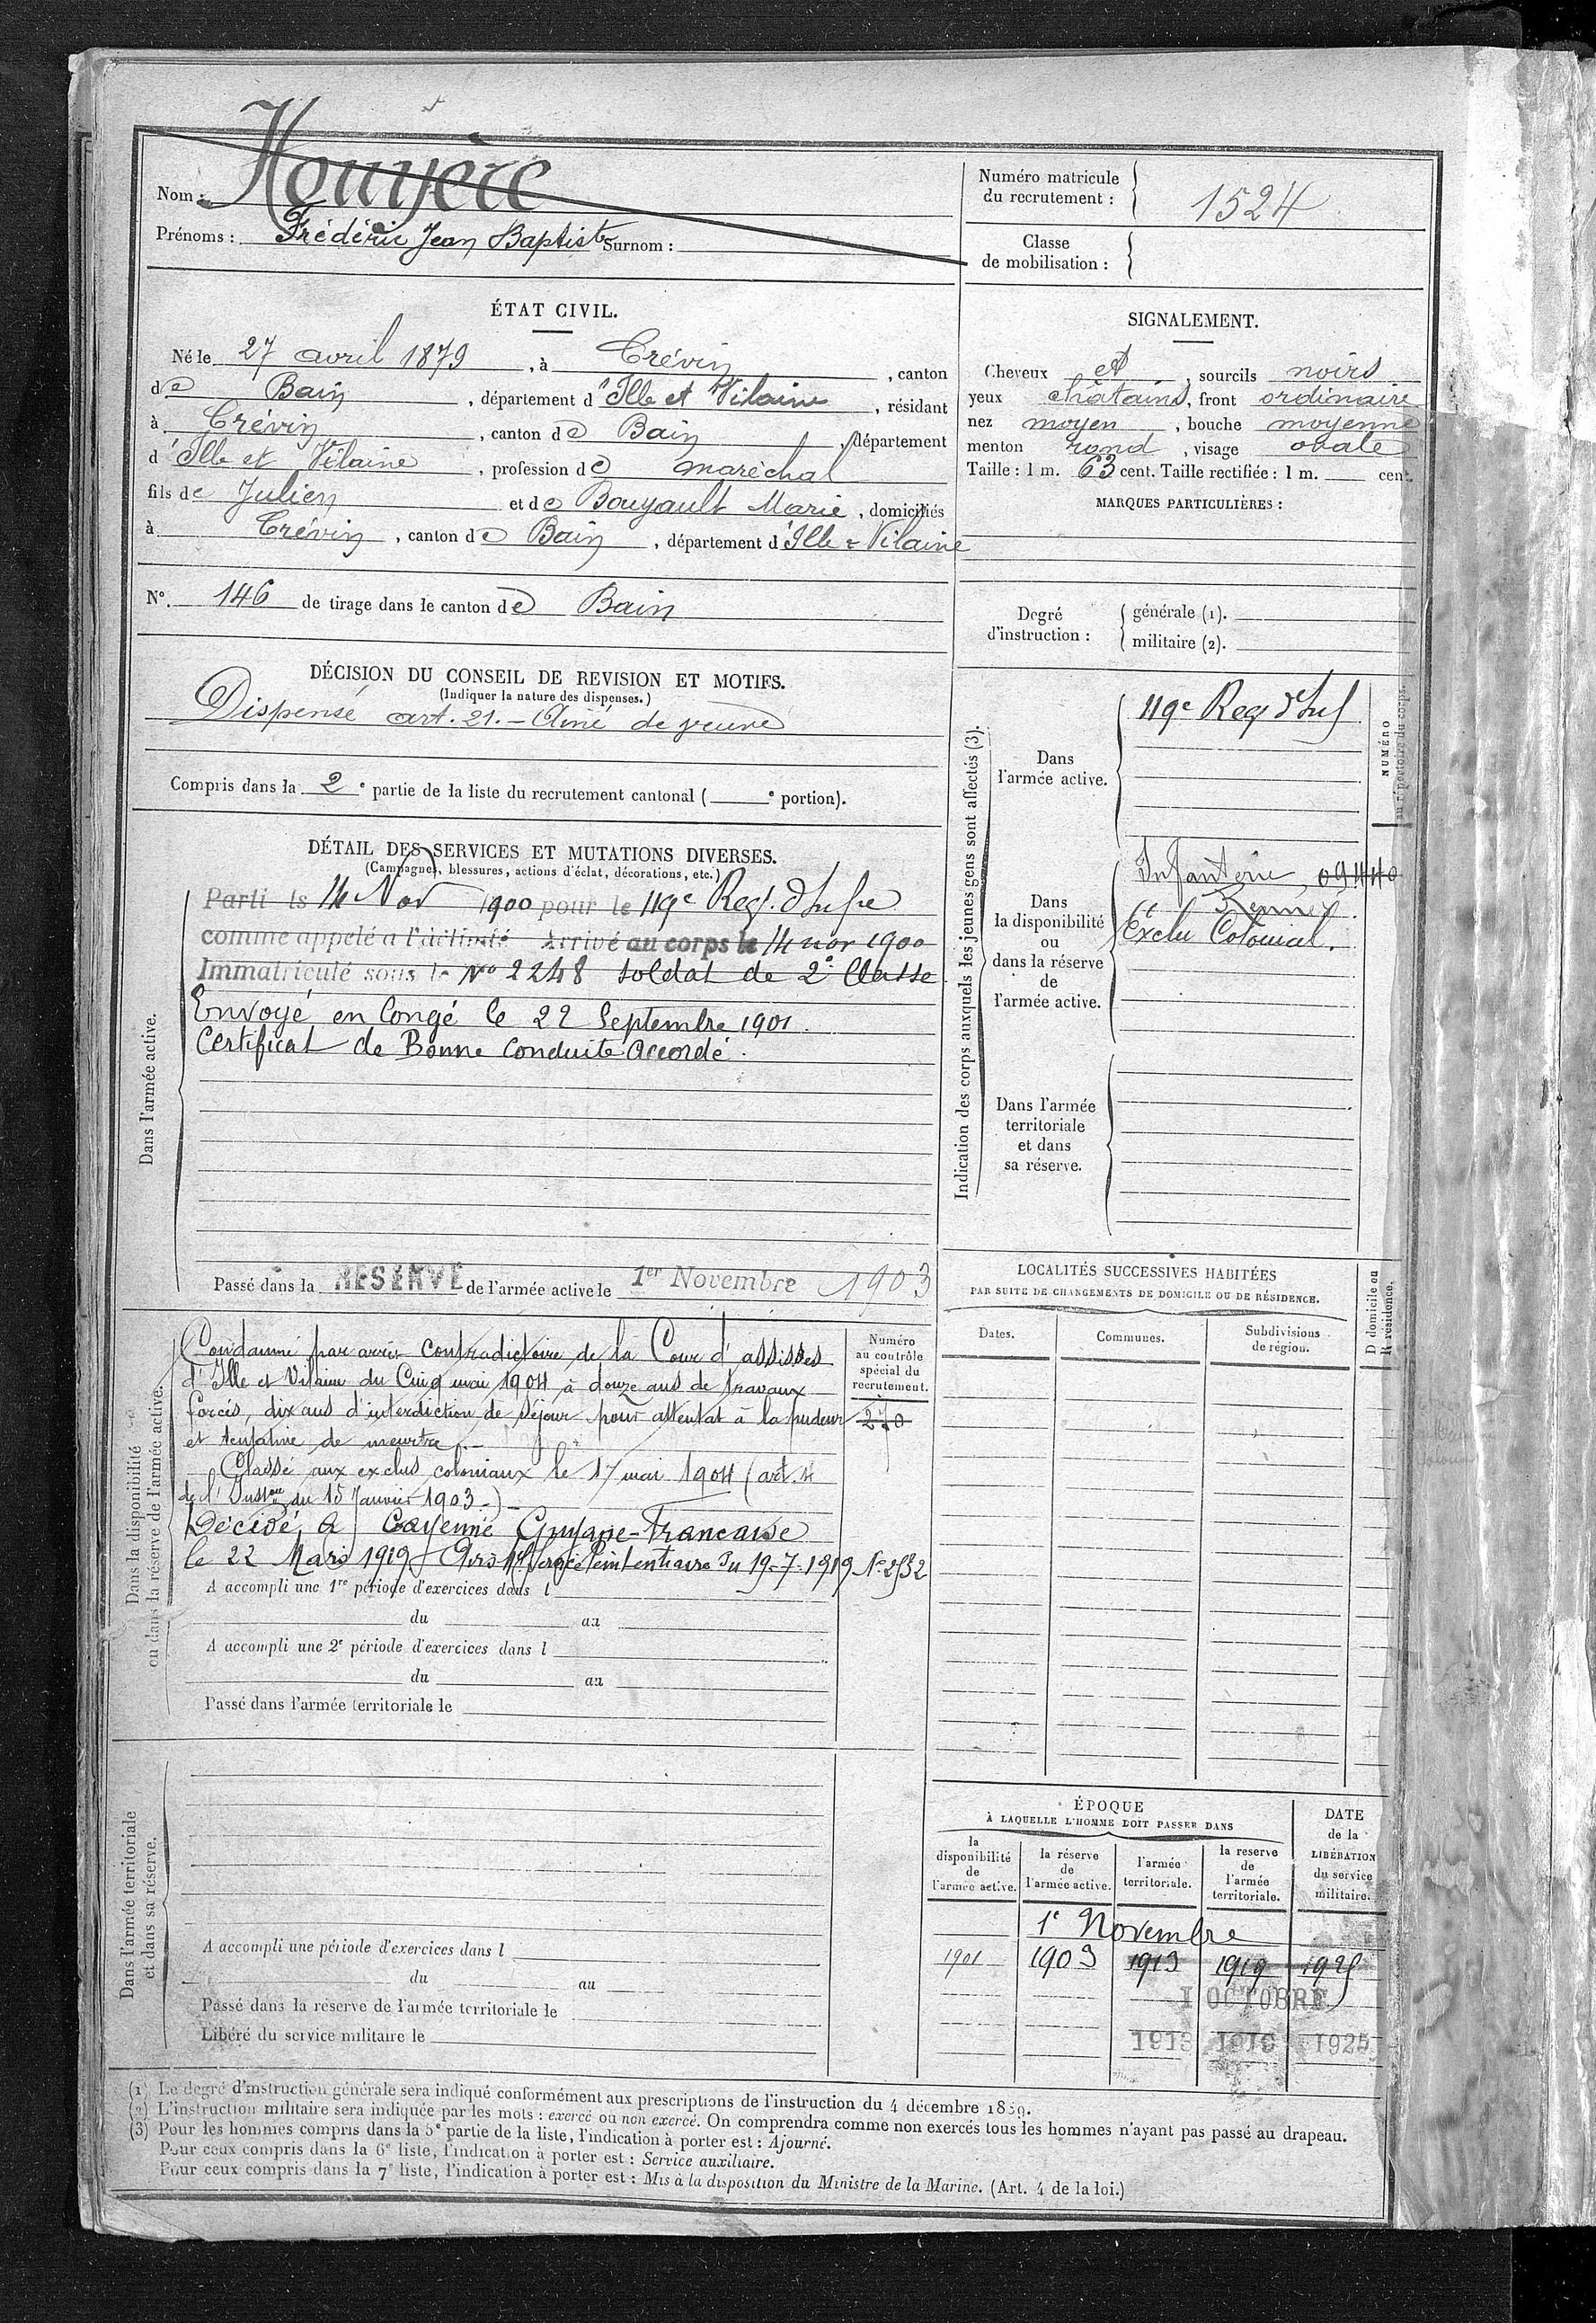 Nom : Houyère
Prénoms : Frédéric Jean Baptiste Surnom :
Numéro matricule du recrutement : 1524
Classe de mobilisation :
ÉTAT CIVIL.
Né le 27 avril 1879, à Crévin, canton
de Bain, département d'Ille et Vilaine, résidant
à Crévin, canton de Bain, département
d'Ille et Vilaine, profession de maréchal
fils de Julien et de Bouyault Marie, domiciliés
à Crévin, canton de Bain, département d'Ille & Vilaine
N° 146 de tirage dans le canton de Bain
SIGNALEMENT.
Cheveux et, sourcils noirs
yeux châtains, front ordinaire
nez moyen, bouche moyenne
menton rond, visage ovale
Taille : 1 m. 63 cent. Taille rectifiée : 1 m. cent.
MARQUES PARTICULIÈRES :
Degré d'instruction :
générale (1).
militaire (2).
DÉCISION DU CONSEIL DE REVISION ET MOTIFS.
(Indiquer la nature des dispenses.)
Dispensé art. 21. - Ainé de veuve
Compris dans la 2e partie de la liste du recrutement cantonal ( e portion).
DÉTAIL DES SERVICES ET MUTATIONS DIVERSES.
(Campagnes, blessures, actions d'éclat, décorations, etc.)
Dans l'armée active.
Parti le 14 Nov 1900 pour le 119e Reg. d'Infie
comme appelé à l'activité Arrivé au corps le 14 nov 1900
Immatriculé sous le No 2248 soldat de 2e Classe
Envoyé en Congé le 22 Septembre 1901.
Certificat de Bonne Conduite Accordé.
Passé dans la RÉSERVE de l'armée active le 1er Novembre 1903
Indication des corps auxquels les jeunes gens sont affectés (3).
NUMÉRO au répertoire du corps.
Dans l'armée active.
119e Reg d'Inf
Dans la disponibilité ou dans la réserve de l'armée active.
Infanterie 09440
Rennes
Exclu Colonial.
Dans l'armée territoriale et dans sa réserve.
Dans la disponibilité ou dans la réserve de l'armée active.
Condamné par arrêt contradictoire de la Cour d'assises
d'Ille et Vilaine du Cinq mai 1904 à douze ans de travaux
forcés, dix ans d'interdiction de séjour pour attentat à la pudeur
et tentative de meurtre.
Classé aux exclus coloniaux le 17 mai 1904 (art. 4
de l'Inston du 15 Janvier 1903-)
Décédé à Cayenne Guyane-Francaise
le 22 Mars 1919 Avis Pénitentiaire du 19-7-1919 No 2532
Numéro au contrôle spécial du recrutement.
270
A accompli une 1re période d'exercices dans l
du au
A accompli une 2e période d'exercices dans l
du au
Passé dans l'armée territoriale le
LOCALITÉS SUCCESSIVES HABITÉES
PAR SUITE DE CHANGEMENTS DE DOMICILE OU DE RÉSIDENCE.
Dates. Communes. Subdivisions de région.
D domicile ou R résidence.
Dans l'armée territoriale et dans sa réserve.
A accompli une période d'exercices dans l
du au
Passé dans la réserve de l'armée territoriale le
Libéré du service militaire le
ÉPOQUE
À LAQUELLE L'HOMME DOIT PASSER DANS
la disponibilité de l'armée active.
la réserve de l'armée active.
l'armée territoriale.
la reserve de l'armée territoriale.
DATE de la LIBÉRATION du service militaire.
1e Novembre
1901 1903 1913 1919 1925
1 OCTOBRE
1913 1919 1925
(1) Le degré d'instruction générale sera indiqué conformément aux prescriptions de l'instruction du 4 décembre 1889.
(2) L'instruction militaire sera indiquée par les mots : exercé ou non exercé. On comprendra comme non exercés tous les hommes n'ayant pas passé au drapeau.
(3) Pour les hommes compris dans la 5e partie de la liste, l'indication à porter est : Ajourné.
Pour ceux compris dans la 6e liste, l'indication à porter est : Service auxiliaire.
Pour ceux compris dans la 7e liste, l'indication à porter est : Mis à la disposition du Ministre de la Marine. (Art. 4 de la loi.)